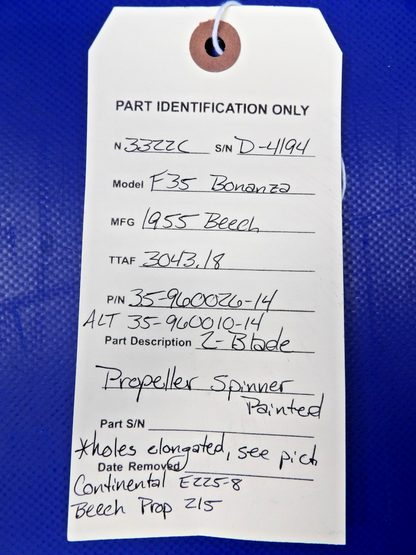 PART IDENTIFICATION ONLY
N 3322C S/N D-4194
Model F35 Bonanza
MFG 1955 Beech
TTAF 3043.18
P/N 35-960026-14
ALT 35-960010-14
Part Description 2-Blade
Propeller Spinner
Painted
Part S/N
*holes elongated, see pich
Date Removed
Continental E225-8
Beech Prop 215